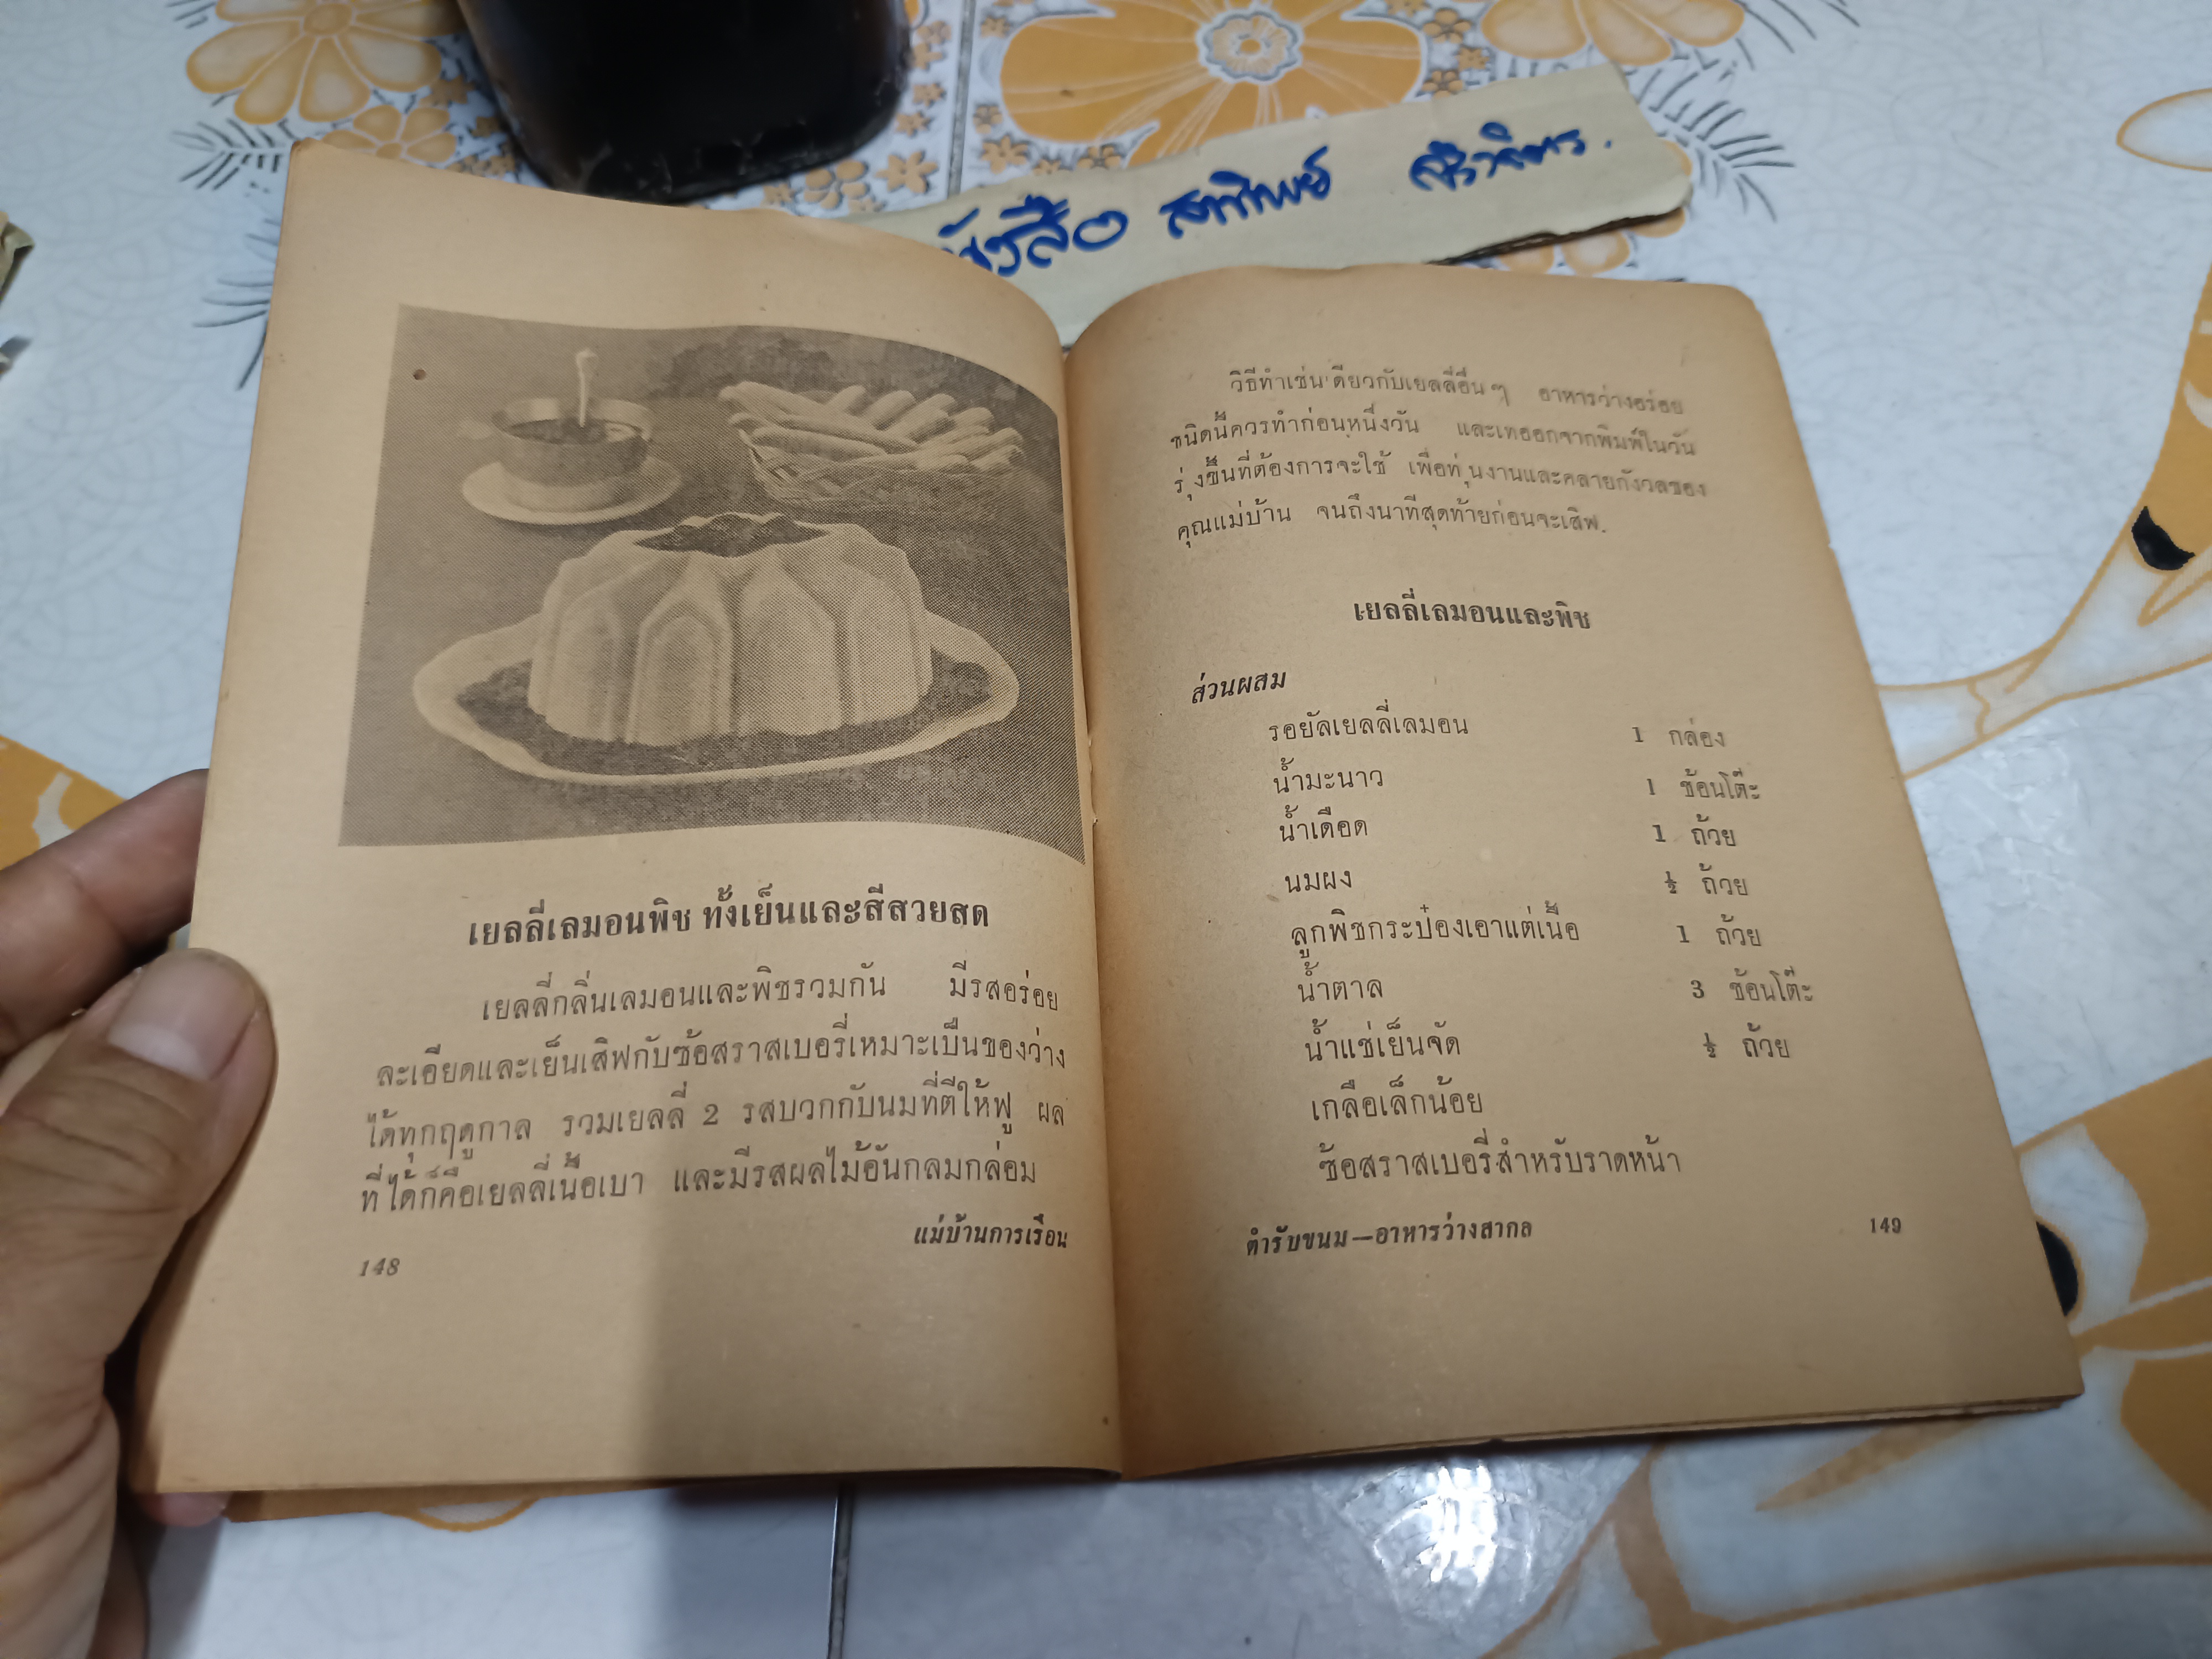 หนังสือ สาทิพย์
เยลลี่เลมอนพิช ทั้งเย็นและสีสวยสด
เยลลี่กลิ่นเลมอนและพิชรวมกัน มีรสอร่อย
ละเอียดและเย็นเสิฟกับซ้อสราสเบอรี่เหมาะเป็นของว่าง
ได้ทุกฤดูกาล รวมเยลลี่ 2 รสบวกกับนมที่ตีให้ฟู ผล
ที่ได้ก็คือเยลลี่เนื้อเบา และมีรสผลไม้อันกลมกล่อม
แม่บ้านการเรือน
148
วิธีทำเช่นเดียวกับเยลลี่อื่นๆ อาหารว่างอร่อย
ชนิดนี้ควรทำก่อนหนึ่งวัน และเทออกจากพิมพ์ในวัน
รุ่งขึ้นที่ต้องการจะใช้ เพื่อทุ่นงานและคลายกังวลของ
คุณแม่บ้าน จนถึงนาทีสุดท้ายก่อนจะเสิฟ.
เยลลี่เลมอนและพิช
ส่วนผสม
รอยัลเยลลี่เลมอน 1 กล่อง
น้ำมะนาว 1 ช้อนโต๊ะ
น้ำเดือด 1 ถ้วย
นมผง ½ ถ้วย
ลูกพิชกระป๋องเอาแต่เนื้อ 1 ถ้วย
น้ำตาล 3 ช้อนโต๊ะ
น้ำแช่เย็นจัด ½ ถ้วย
เกลือเล็กน้อย
ซ้อสราสเบอรี่สำหรับราดหน้า
ตำรับขนม—อาหารว่างสากล 149